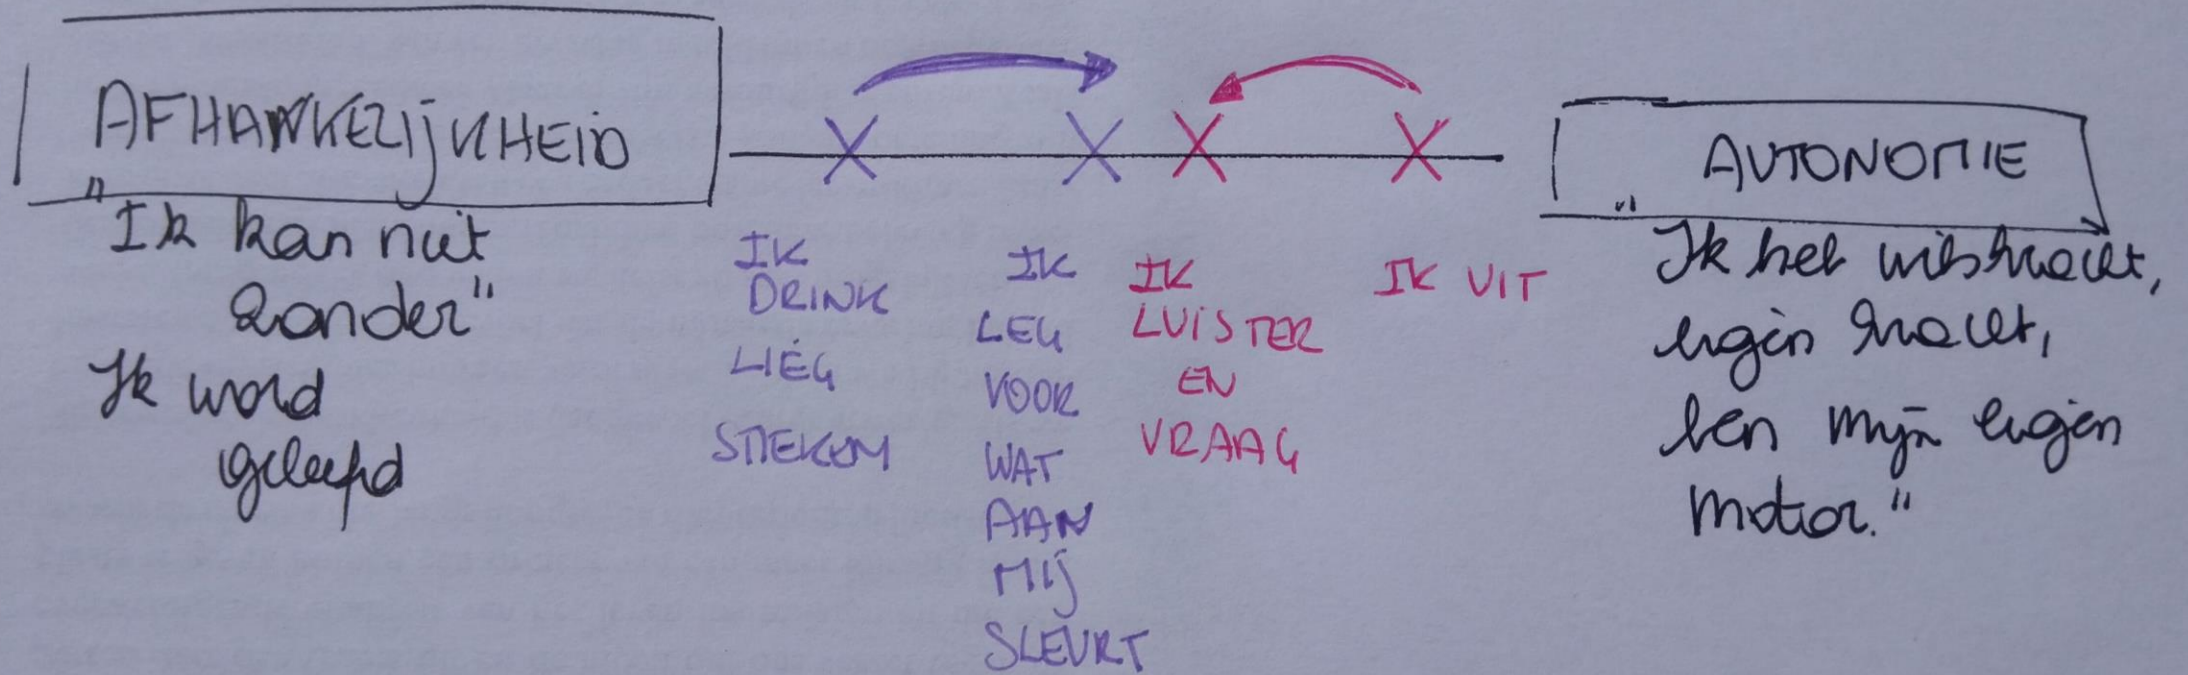 AFHANKELIJKHEID
"Ik kan niet
zonder"
Ik word
geleefd
IK
DRINK
LIEG
STIEKEM
IK
LEG
VOOR
WAT
AAN
MIJ
SLEURT
IK
LUISTER
EN
VRAAG
IK UIT
AUTONOMIE
"Ik heb wilskracht,
eigen kracht,
ben mijn eigen
motor."